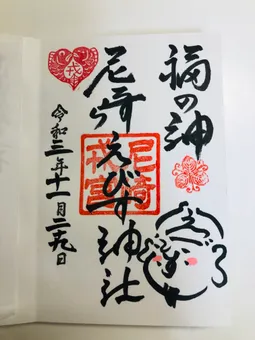 福の神
尼崎えびす神社
令和三年十一月二十九日
戎
尼崎
戎宮